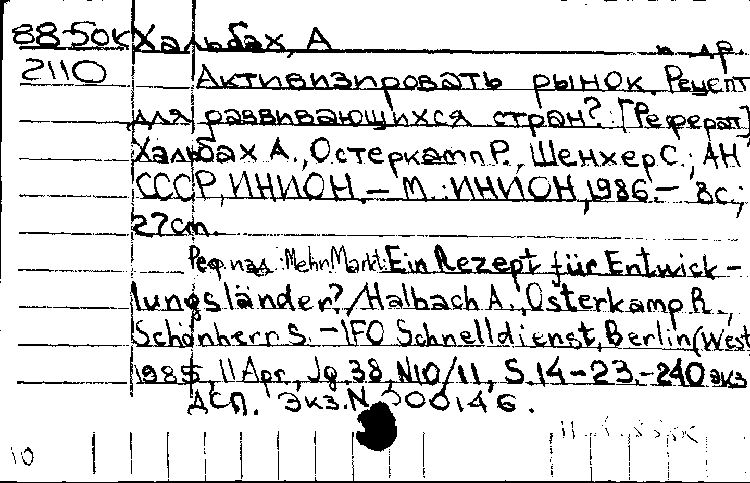 88-50к Хальбах, А
2110 и др.
Активизировать рынок. Рецепт
для развивающихся стран? [Реферат]
Хальбах А., Остеркамп Р., Шенхер С.; АН
СССР, ИНИОН. - М.: ИНИОН, 1986. - 8с.;
27cm.
Реф. изд.: Mehr Markt: Ein Rezept für Entwick-
lungsländer? / Halbach A., Osterkamp R.,
Schönherr S. - IFO Schnelldienst, Berlin (West
1985, 11 Apr., Jg. 38, N10/11, S. 14-23. - 240 экз
ДСП. Экз. N 000146.
10